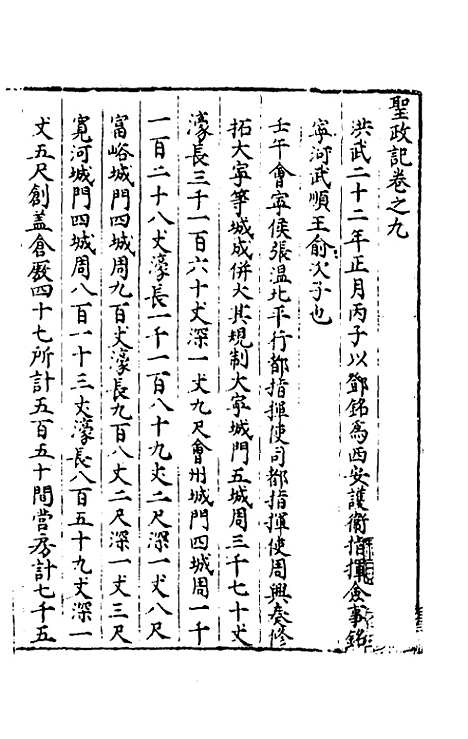 聖政記卷之九
洪武二十二年正月丙子以鄧銘為西安護衛指揮僉事銘
寧河武順王愈次子也
壬午會寧侯張溫北平行都指揮使司都指揮使周興奏修
拓大寧等城成併大其規制大寧城門五城周三千七十丈
濠長三千一百六十丈深一丈九尺會州城門四城周一千
一百二十八丈濠長一千一百八十九丈二尺深一丈八尺
富峪城門四城周九百丈濠長九百八丈二尺深一丈三尺
寬河城門四城周八百一十三丈濠長八百五十九丈深一
丈五尺創盖倉厫四十七所計五百五十間營房計七千五